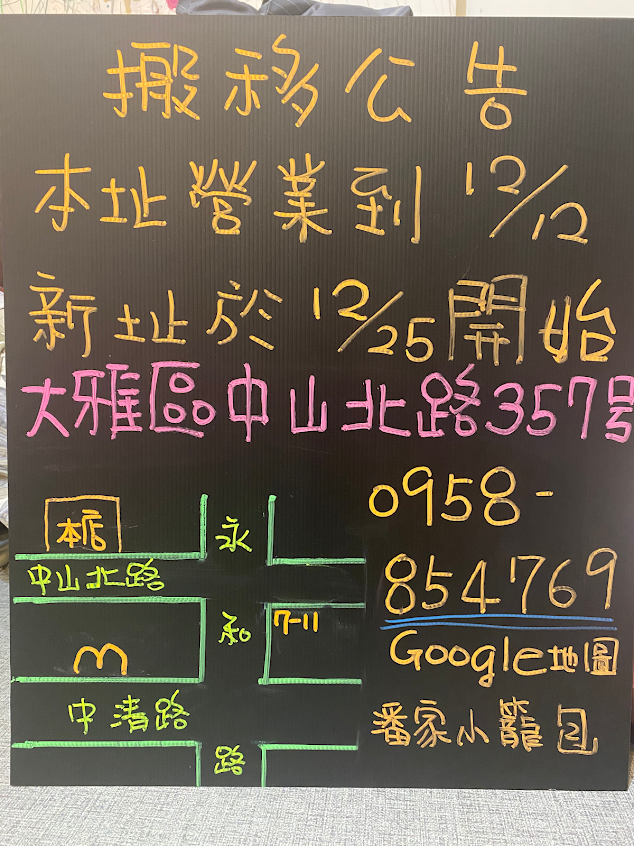 搬移公告
本址營業到 12/12
新址於 12/25 開始
大雅區中山北路357号
0958-
854769
Google地圖
潘家小籠包
本店
永
中山北路
和
7-11
m
中清路
路